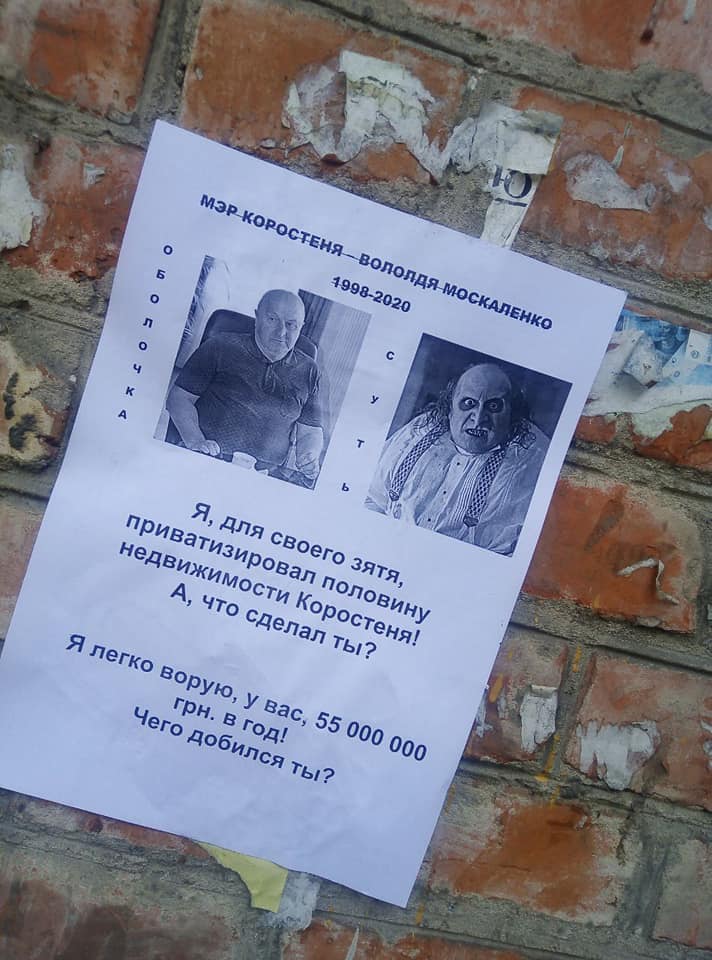 Ю
МЭР КОРОСТЕНЯ - ВОЛОЛДЯ МОСКАЛЕНКО
1998-2020
ОБОЛОЧКА
СУТЬ
Я, для своего зятя,
приватизировал половину
недвижимости Коростеня!
А, что сделал ты?
Я легко ворую, у вас, 55 000 000
грн. в год!
Чего добился ты?